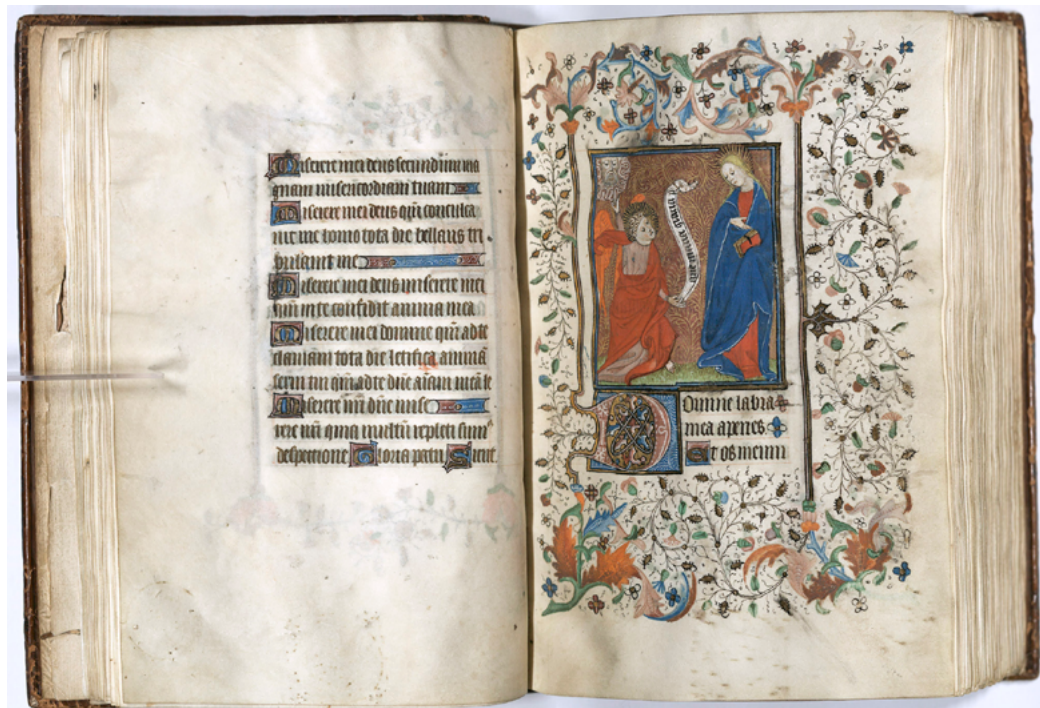 Miserere mei deus secundum ma
gnam misericordiam tuam
Miserere mei deus qm̄ conculca
uit me homo tota die bellans tri
bulauit me
Miserere mei deus miserere mei
qm̄ in te confidit anima mea
Miserere mei domine qm̄ ad te
clamaui tota die letifica animā
serui tui qm̄ ad te dn̄e aīam meā le
Miserere nr̄i dn̄e mise
rere nr̄i quia multū repleti sumꝰ
despectione Gloria patri Sicut
Domine labia
mea aperies
Et os meum